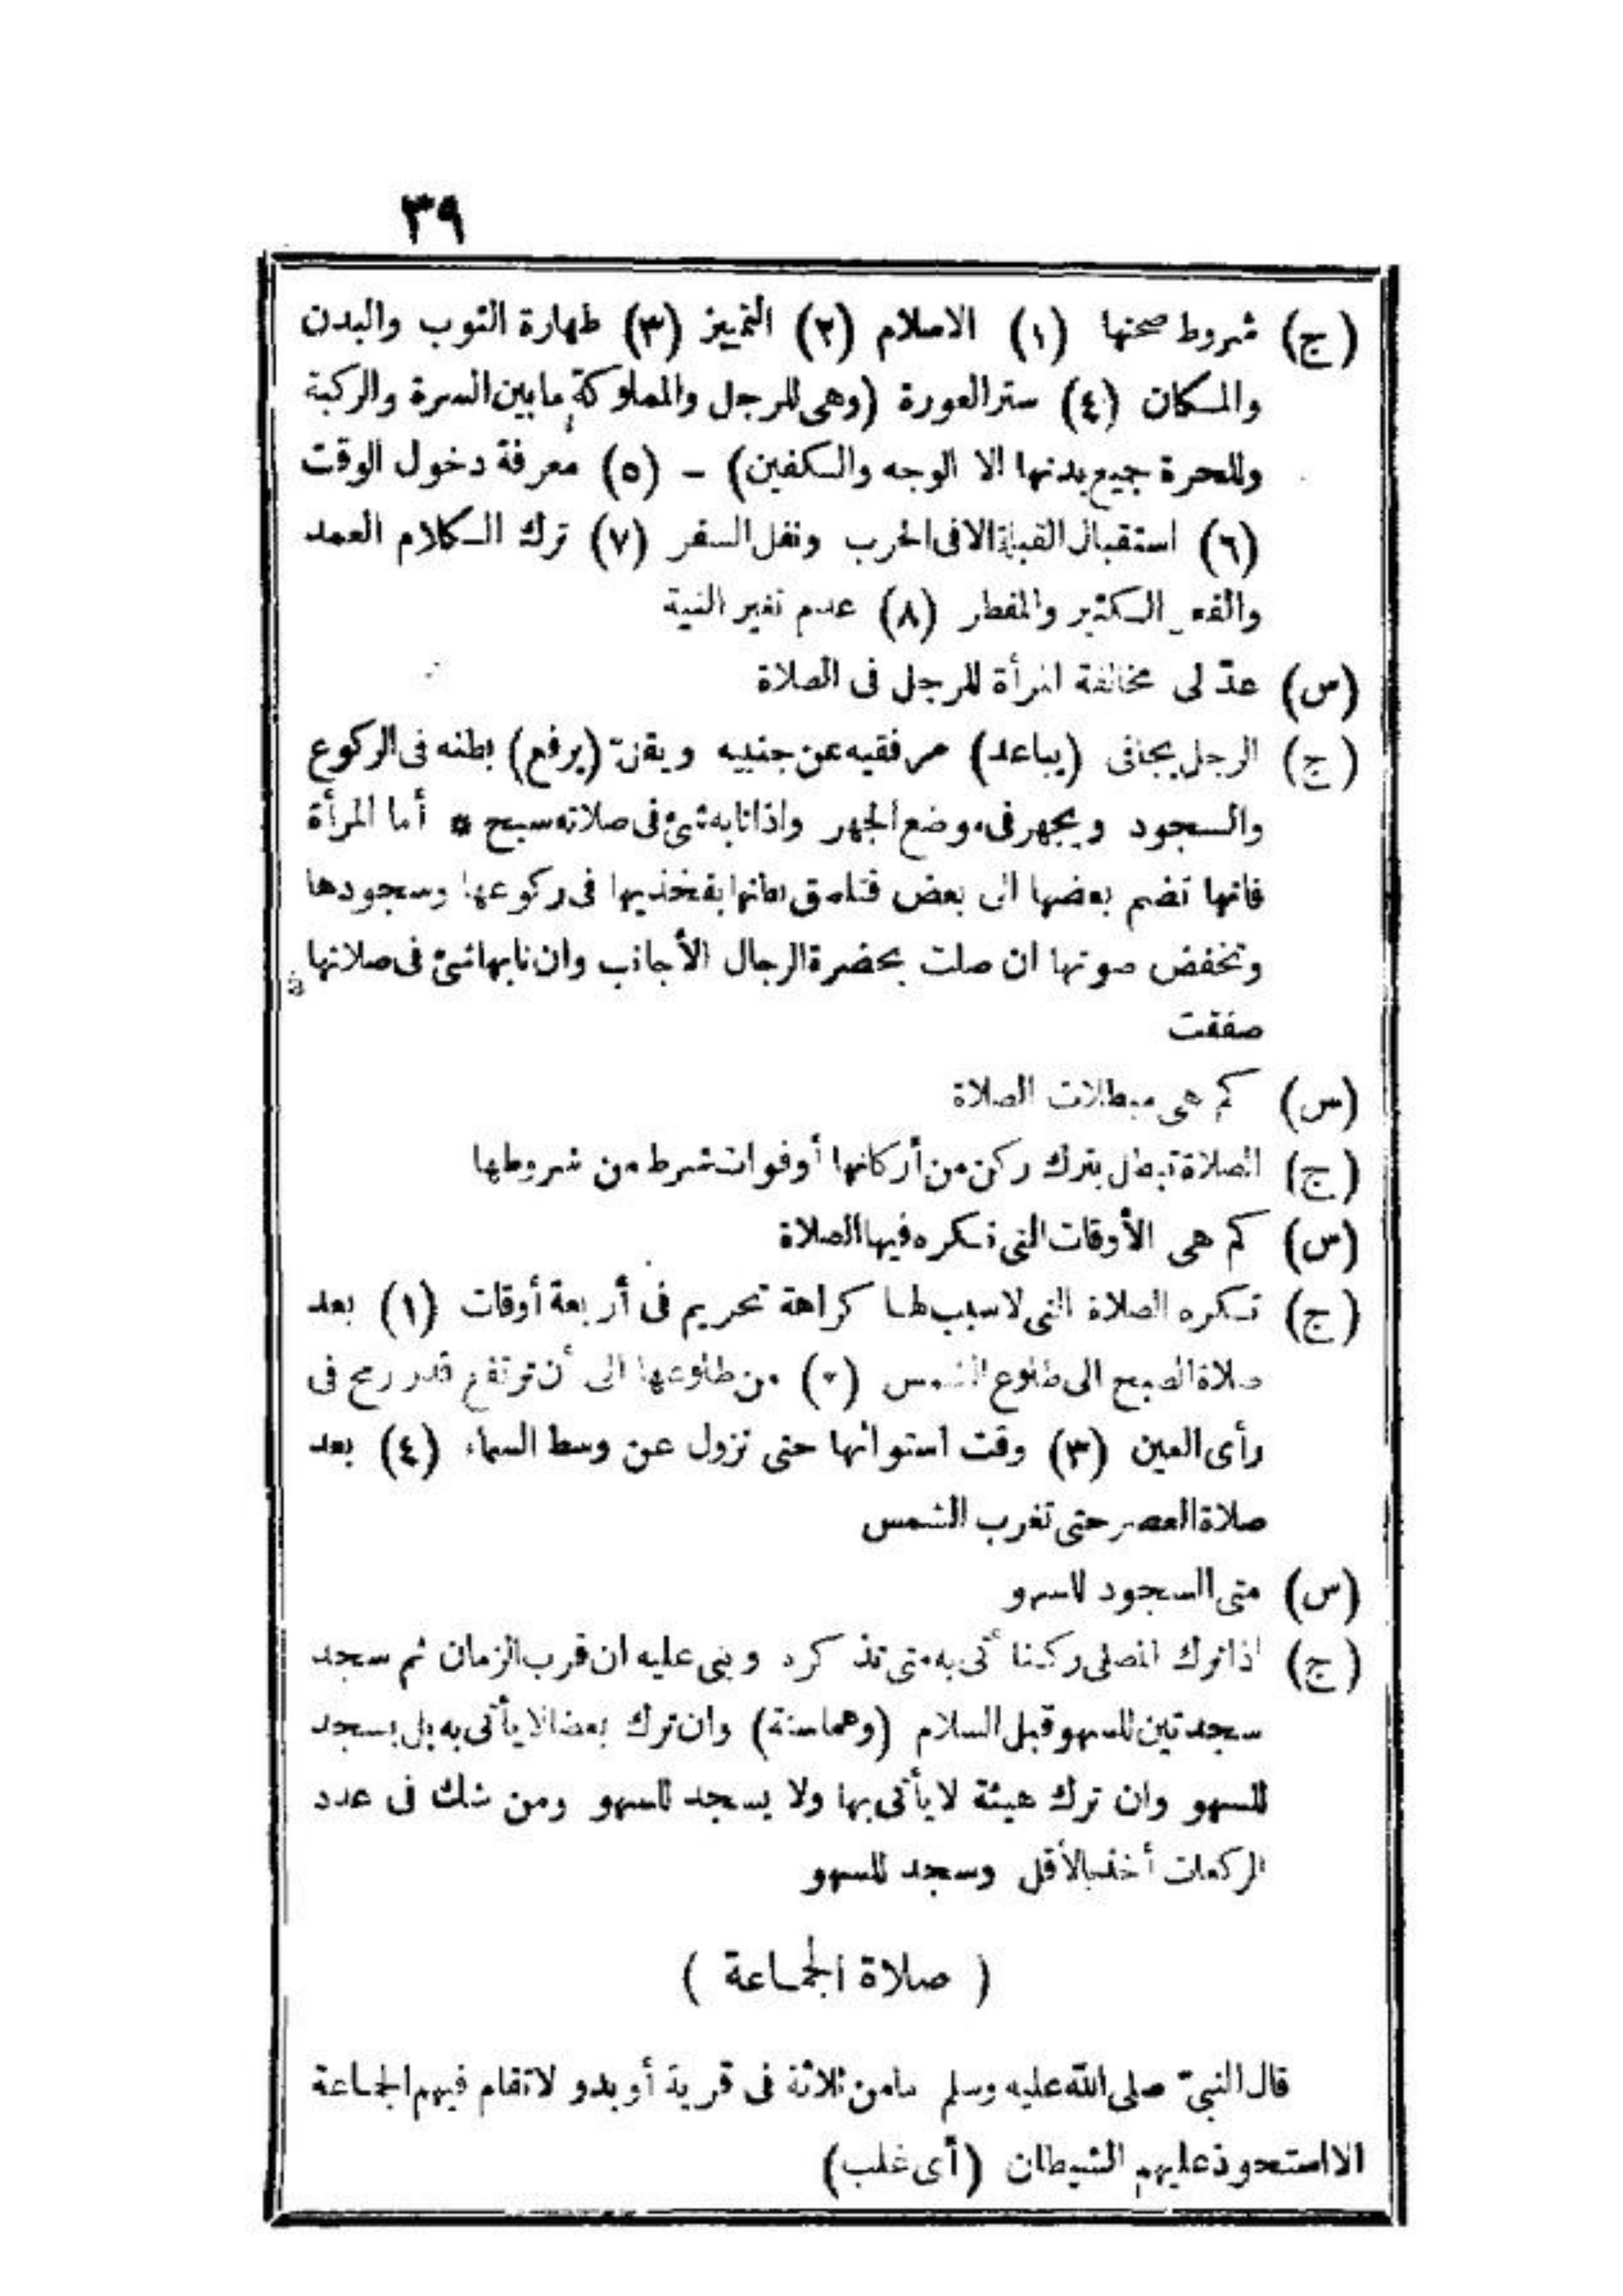 ٣٩
(ج) شروط صحتها (١) الاسلام (٢) التمييز (٣) طهارة الثوب والبدن
والمكان (٤) ستر العورة (وهى للرجل والمملوكة ما بين السرة والركبة
وللحرة جميع بدنها الا الوجه والكفين) - (٥) معرفة دخول الوقت
(٦) استقبال القبلة الا فى الحرب ونفل السفر (٧) ترك الكلام العمد
والفعل الكثير والمفطر (٨) عدم تغير النية
(س) عدّ لى مخالفة المرأة للرجل فى الصلاة
(ج) الرجل يجافى (يباعد) مرفقيه عن جنبيه ويقلّ (يرفع) بطنه فى الركوع
والسجود ويجهر فى موضع الجهر واذا نابه شئ فى صلاته سبح * أما المرأة
فانها تضم بعضها الى بعض فتلصق بطنها بفخذيها فى ركوعها وسجودها
وتخفض صوتها ان صلت بحضرة الرجال الأجانب وان نابها شئ فى صلاتها
صفقت
(س) كم هى مبطلات الصلاة
(ج) الصلاة تبطل بترك ركن من أركانها أو فوات شرط من شروطها
(س) كم هى الأوقات التى تكره فيها الصلاة
(ج) تكره الصلاة التى لا سبب لها كراهة تحريم فى أربعة أوقات (١) بعد
صلاة الصبح الى طلوع الشمس (٢) من طلوعها الى أن ترتفع قدر رمح فى
رأى العين (٣) وقت استوائها حتى تزول عن وسط السماء (٤) بعد
صلاة العصر حتى تغرب الشمس
(س) متى السجود للسهو
(ج) اذا ترك المصلى ركنا أتى به متى تذكره وبنى عليه ان قرب الزمان ثم سجد
سجدتين للسهو قبل السلام (وهما سنة) وان ترك بعضا لا يأتى به بل يسجد
للسهو وان ترك هيئة لا يأتى بها ولا يسجد للسهو ومن شك فى عدد
الركعات أخذ بالأقل وسجد للسهو
( صلاة الجماعة )
قال النبىّ صلى الله عليه وسلم ما من ثلاثة فى قرية أو بدو لا تقام فيهم الجماعة
الا استحوذ عليهم الشيطان (أى غلب)